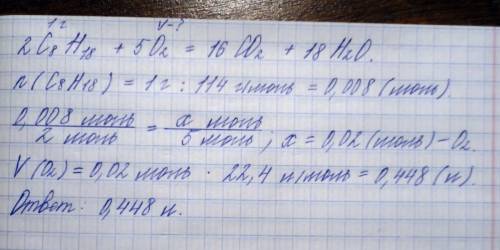 1 г V-?
2C₈H₁₈ + 5O₂ = 16CO₂ + 18H₂O.
n(C₈H₁₈) = 1 г : 114 г/моль = 0,008 (моль).
0,008 моль / 2 моль = x моль / 5 моль ; x = 0,02 (моль) - O₂.
V(O₂) = 0,02 моль · 22,4 л/моль = 0,448 (л).
Ответ: 0,448 л.